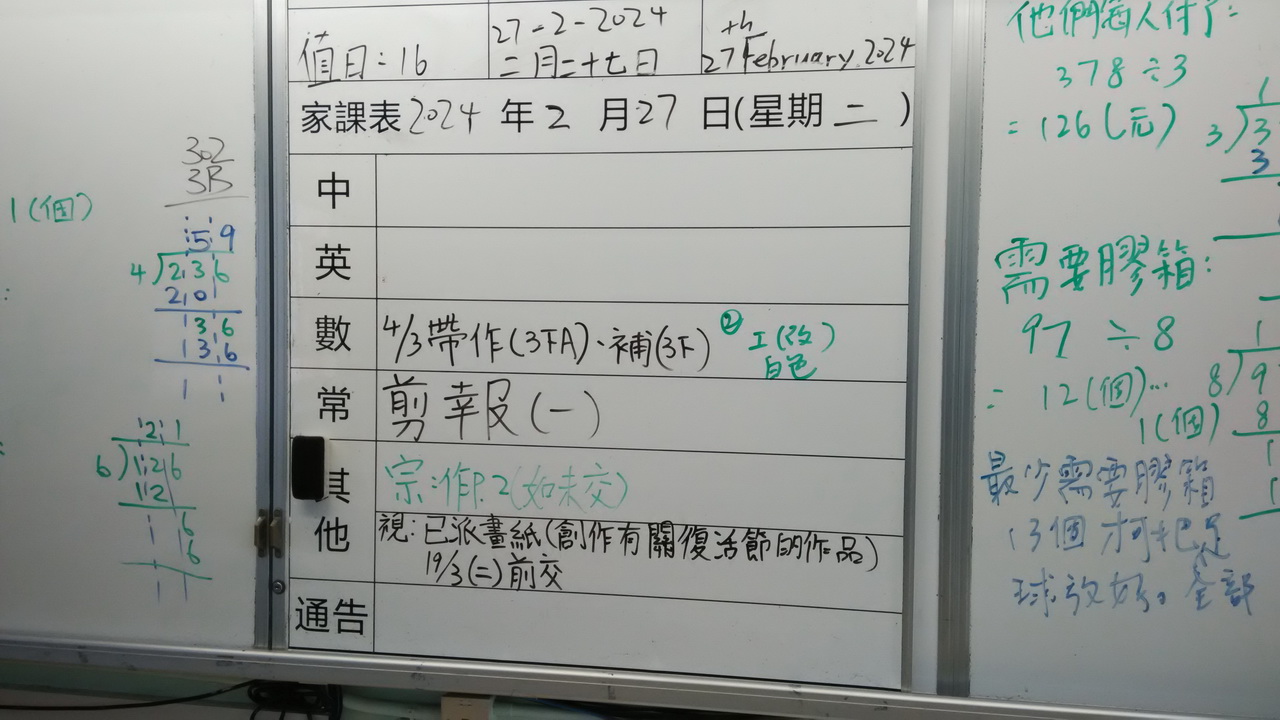 1(個)
302
3B
59
4)236
20
136
136
21
6)126
12
6
6
值日:16
27-2-2024
二月二十七日
27th February, 2024
家課表2024年2月27日(星期二)
中
英
數
4/3帶作(3下A)、補(3下) ② 工(改)
白色
常
剪報(一)
其他
宗:作P.2(如未交)
視:已派畫紙(創作有關復活節的作品)
19/3(二)前交
通告
他們每人付了:
378÷3
=126(元)
1
3)3
3
需要膠箱:
97÷8
=12(個)…
1(個)
1
8)9
8
1
1
最少需要膠箱
13個才可把足
球放好。全部